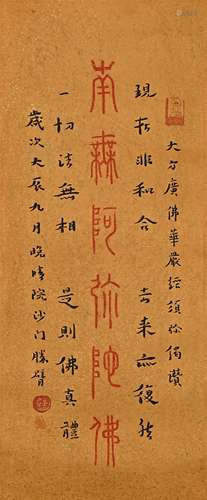 大方廣佛華嚴經須弥偈讚
現在非和合 去來亦復然
南無阿弥陀佛
一切法無相 是則佛真體
歲次大辰九月晚晴院沙门勝臂